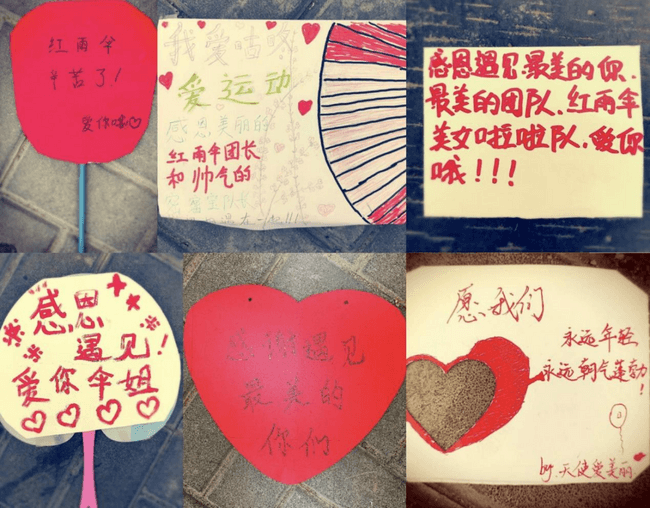 红雨伞
辛苦了!
爱你哦♡
我爱咕咚
爱运动
感恩美丽的
红雨伞团长
和帅气的
感恩遇见最美的你.
最美的团队.红雨伞
美女啦啦队.爱你
哦!!!
感恩
遇见!
爱你伞姐
感谢遇见
最美的
你们
愿我们
永远年轻
永远朝气蓬勃!
by.天使爱美丽